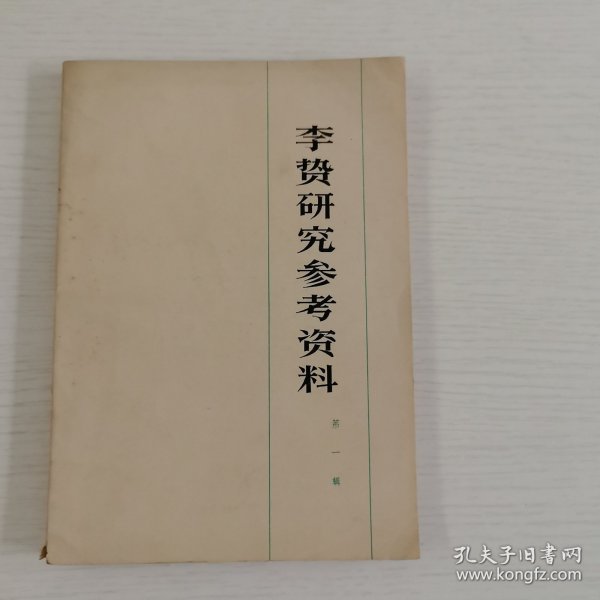 李贽研究参考资料
第一辑
孔夫子旧书网
www.kongfz.com